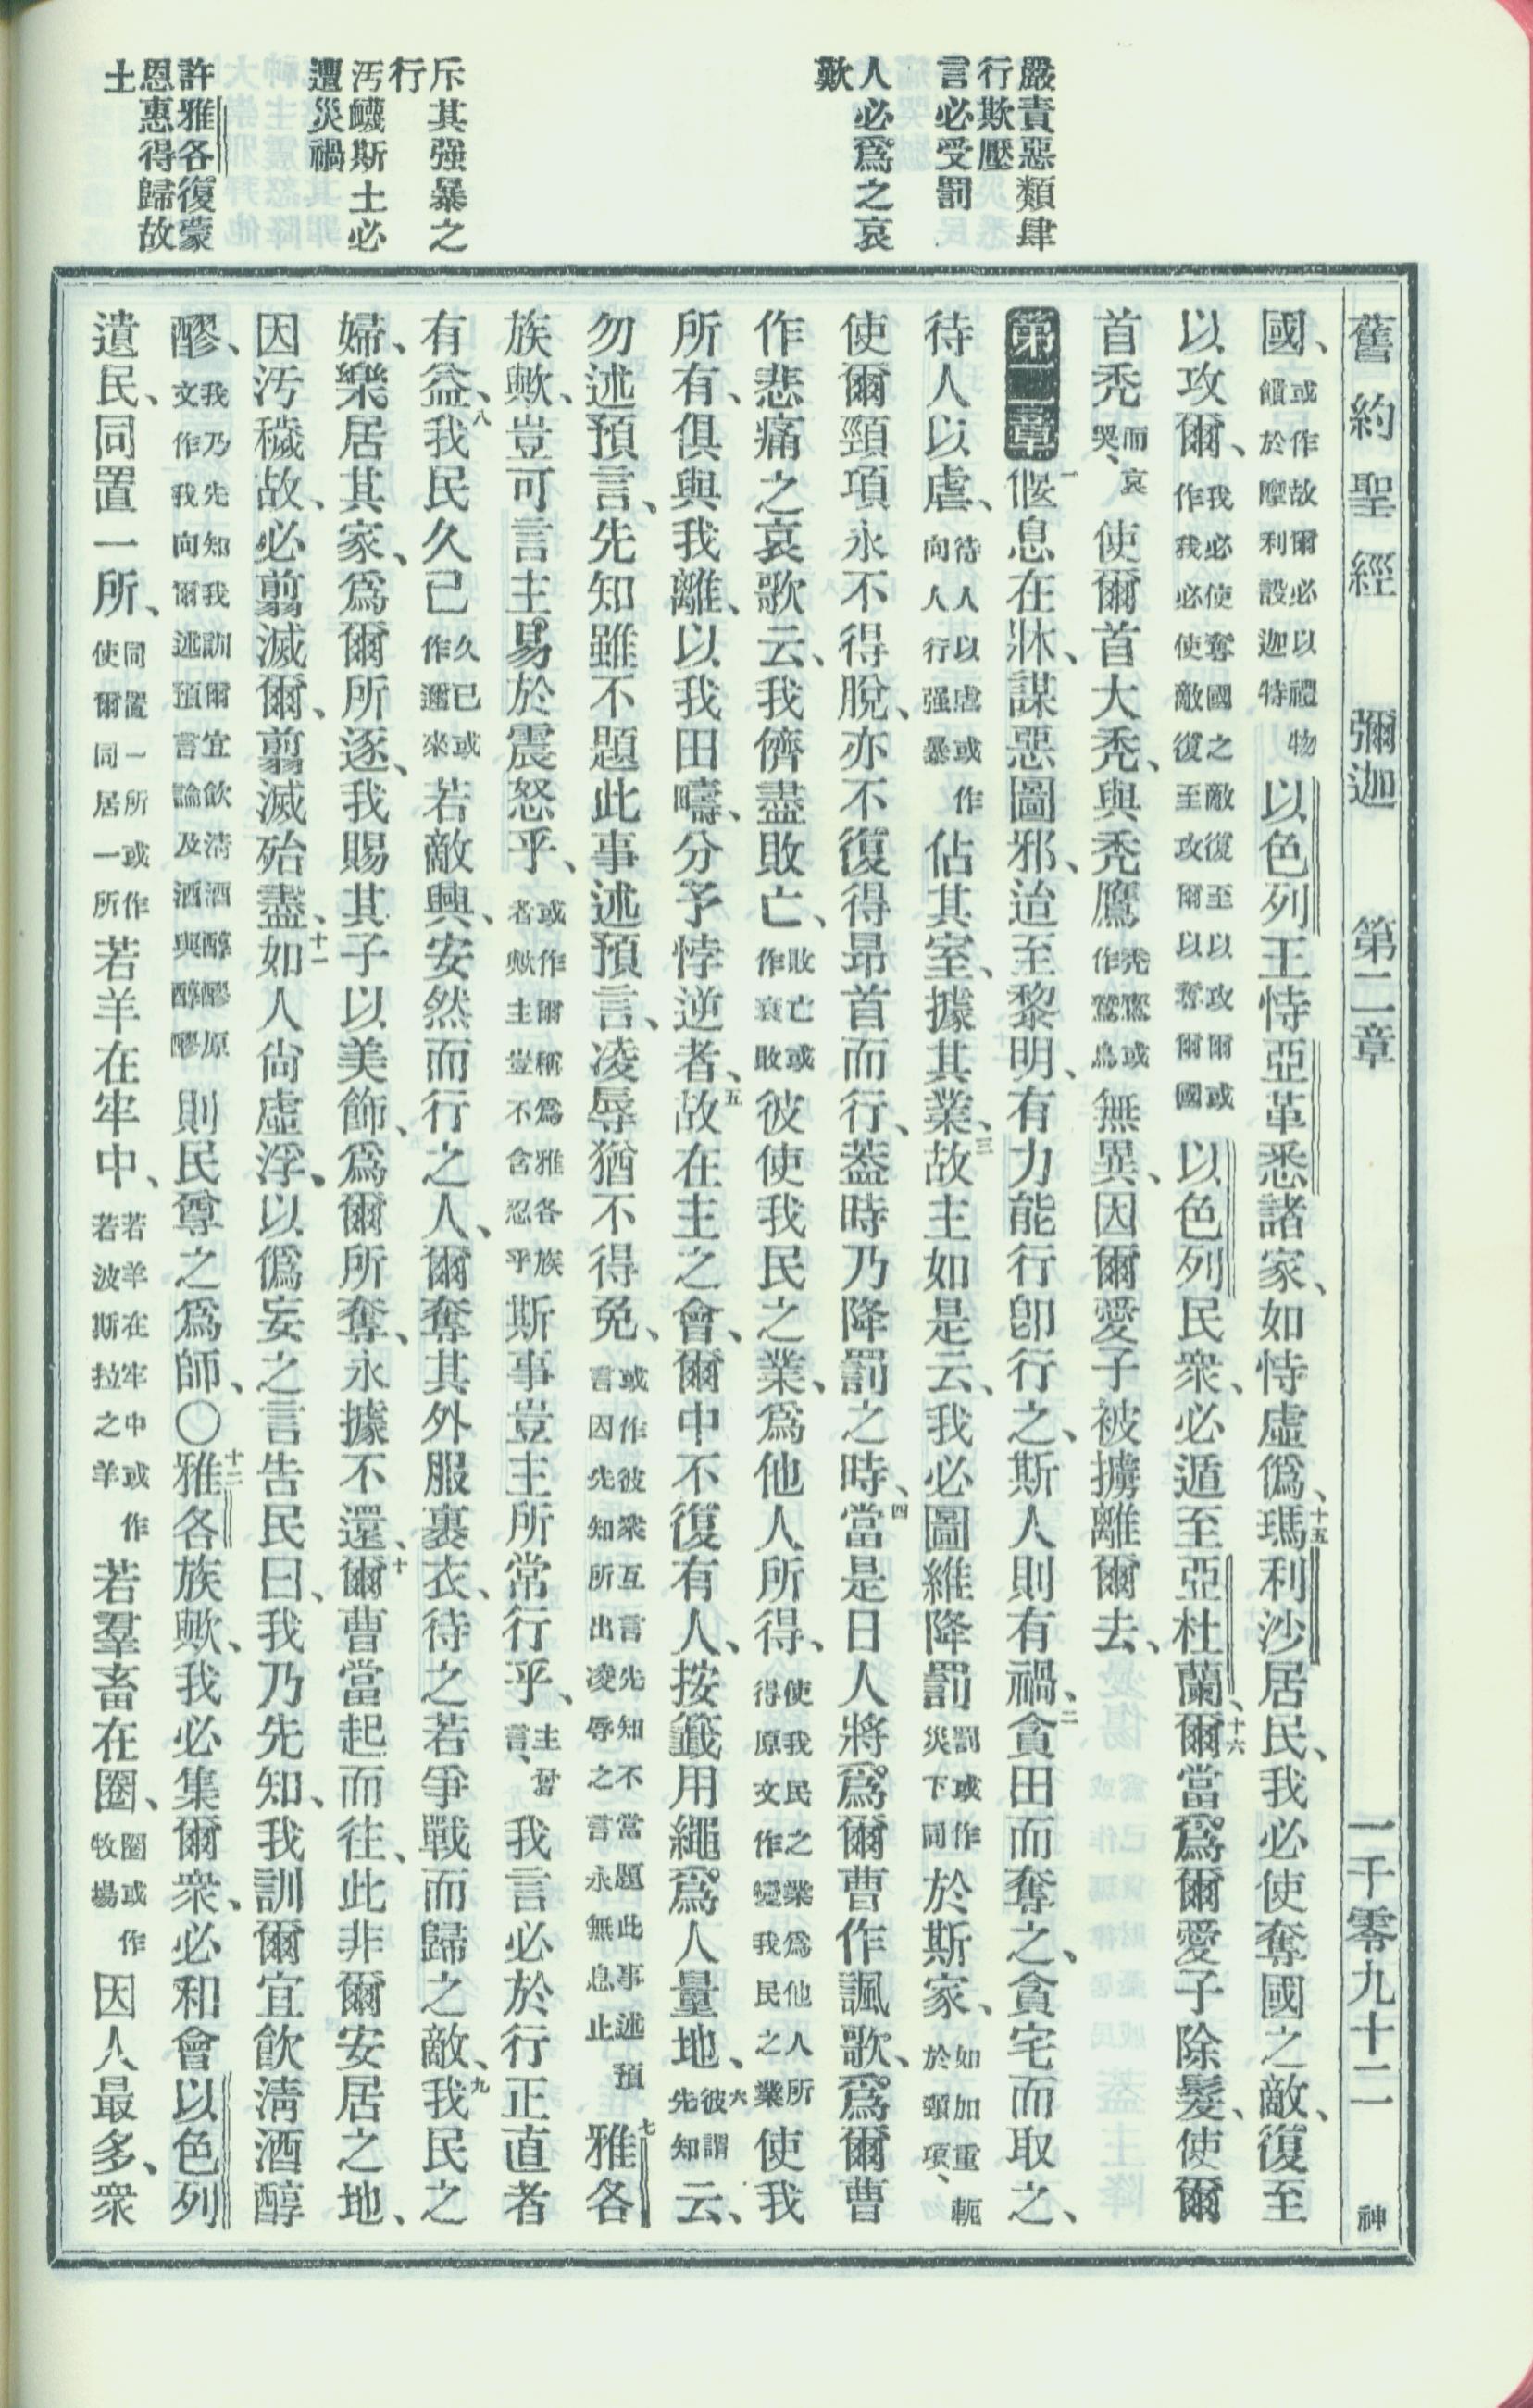 嚴責惡類肆
行欺壓
言必受罰
人必爲之哀
歎
斥其强暴之
行
汚衊斯土必
遭災禍
許雅各復蒙
恩惠得歸故
土
舊約聖經 彌迦 第二章 一千零九十二 神
國、或作故爾必以禮物餽於摩利設迦特以色列王恃亞革悉諸家、如恃虛僞、十五瑪利沙居民、我必使奪國之敵、復至
以攻爾、我必使奪國之敵復至以攻爾或作我必使敵復至攻爾以奪爾國以色列民衆、必遁至亞杜蘭、十六爾當爲爾愛子除髮、使爾
首禿而哀哭、使爾首大禿、與禿鷹禿鷹或作鷲鳥無異、因爾愛子被擄離爾去、
第二章一偃息在牀、謀惡圖邪、迨至黎明、有力能行卽行之、斯人則有禍、二貪田而奪之、貪宅而取之、
待人以虐、待人以虐或作向人行强暴佔其室、據其業、三故主如是云、我必圖維降罰罰或作災下同於斯家、如加重軛於頸項、
使爾頸項永不得脫、亦不復得昻首而行、蓋時乃降罰之時、四當是日人將爲爾曹作諷歌、爲爾曹
作悲痛之哀歌云、我儕盡敗亡、敗亡或作衰敗彼使我民之業、爲他人所得、使我民之業爲他人所得原文作變我民之業使我
所有、俱與我離、以我田疇、分予悖逆者、五故在主之會、爾中不復有人、按籤用繩爲人量地、六彼謂先知云、
勿述預言、先知雖不題此事述預言、凌辱猶不得免、或作彼衆互言先知不當題此事述預言因先知所出凌辱之言永無息止七雅各
族歟、豈可言主易於震怒乎、或作爾稱爲雅各族者歟主豈不含忍乎斯事豈主所常行乎、主答言、我言必於行正直者
有益、八我民久已久已或作邇來若敵興、安然而行之人、爾奪其外服裏衣、待之若爭戰而歸之敵、九我民之
婦、樂居其家、爲爾所逐、我賜其子以美飾、爲爾所奪、永據不還、十爾曹當起而往、此非爾安居之地、
因汚穢故、必翦滅爾、翦滅殆盡、十一如人尙虛浮、以僞妄之言告民曰、我乃先知、我訓爾宜飮淸酒醇
醪、我乃先知我訓爾宜飮淸酒醇醪原文作我向爾述預言論及酒與醇醪則民尊之爲師、〇十二雅各族歟、我必集爾衆、必和會以色列
遺民、同置一所、同置一所或作使爾同居一所若羊在牢中、若羊在牢中或作若波斯拉之羊若羣畜在圈、圈或作牧場因人最多、衆